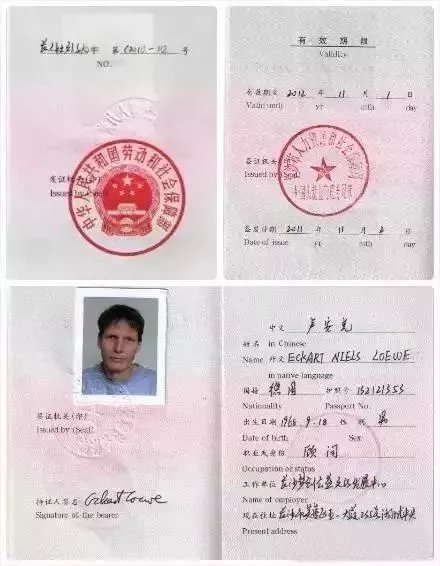 第(2012-112号
NO.
中华人民共和国劳动和社会保障部
发证机关(印)
Issued by (Seal)
有效期限
Validity
有效期至 2012 年 11 月 1 日
Valid until yr mth day
签证机关(印)
Issued by (Seal)
签发日期 2011 年 11 月 2 日
Date of issue yr mth day
签证机关(印)
Issued by (Seal)
持证人签名
Eckart Loewe
Signature of the bearer
中文 卢安克
姓名 in Chinese
Name 外文 ECKART NIELS LOEWE
in native language
国籍 德国 护照号
Nationality Passport No.
出生日期 1968.9.18 性别 男
Date of birth Sex
职业或身份 顾问
Occupation or status
工作单位
Name of employer
现在住址
Present address